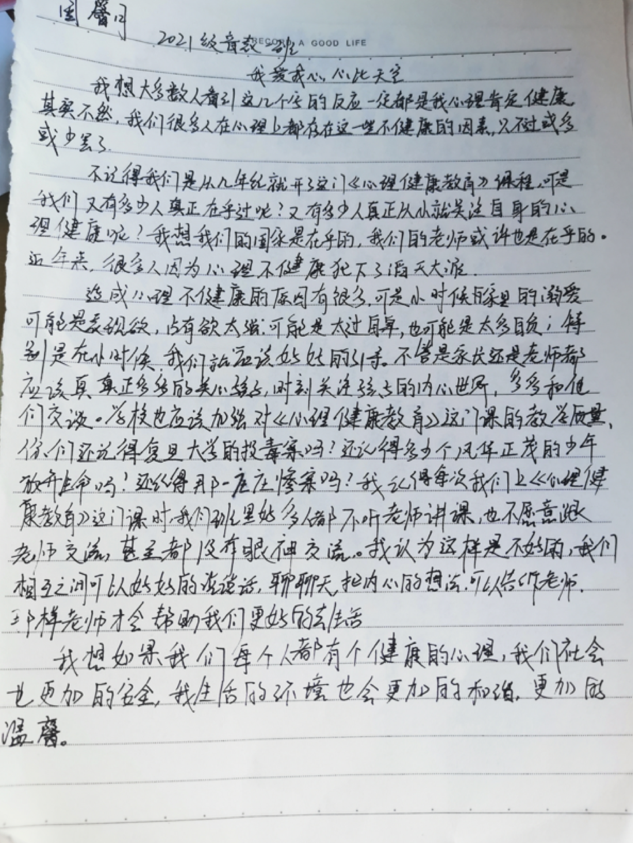 周馨月
RECORD A GOOD LIFE
2021级音教 班
我爱我心,心比天空
我想大多数人看到这几个字的反应一定都是我心理肯定健康
其实不然,我们很多人在心理上都存在这一些不健康的因素,只不过或多
或少罢了
不记得我们是从几年纪就开了这门《心理健康教育》课程,可是
我们又有多少人真正在乎过呢?又有多少人真正从小就关注自身的心
理健康呢?我想我们的国家是在乎的,我们的老师或许也是在乎的。
近年来,很多人因为心理不健康犯下了滔天大罪.
造成心理不健康的原因有很多,可是小时候家里的溺爱
可能是表现欲,占有欲太强可能是太过自卑,也可能是太多自负;特
别是在小时候,我们就应该好好的引导。不管是家长还是老师都
应该真真正正多多的关心孩子,时刻关注孩子的内心世界,多多和他
们交谈。学校也应该加强对《心理健康教育》这门课的教学质量,
你们还记得复旦大学的投毒案吗?还记得多少个风华正茂的少年
放弃生命吗?还记得那一庄庄惨案吗?我记得每次我们上《心理健
康教育》这门课时,我们班里好多人都不听老师讲课,也不愿意跟
老师交流,甚至都没有眼神交流。我认为这样是不好的,我们
相互之间可以好好的谈谈话,聊聊天,把内心的想法,可以告诉老师.
那样老师才会帮助我们更好的去生活
我想如果我们每个人都有个健康的心理,我们社会
也更加的安全,我生活的环境也会更加的和谐,更加的
温馨。